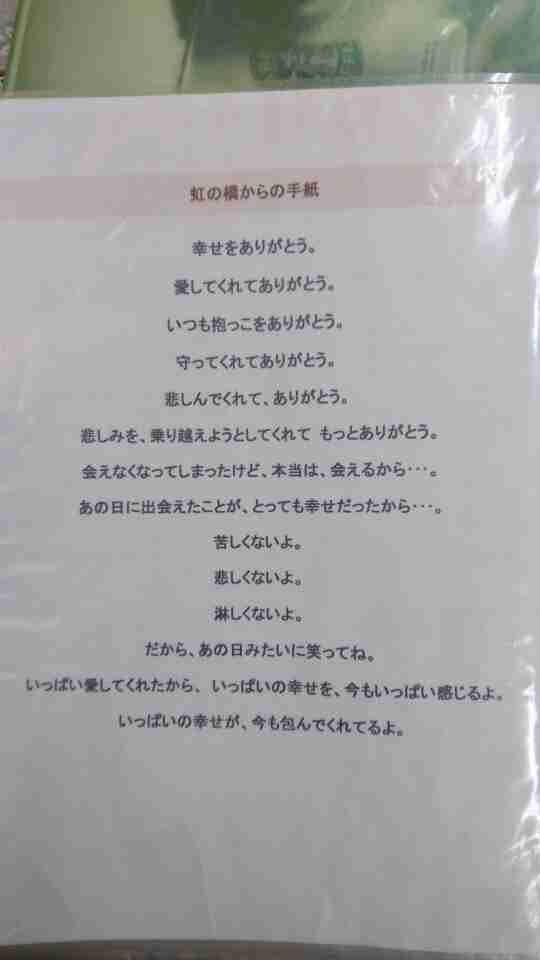 虹の橋からの手紙
幸せをありがとう。
愛してくれてありがとう。
いつも抱っこをありがとう。
守ってくれてありがとう。
悲しんでくれて、ありがとう。
悲しみを、乗り越えようとしてくれて もっとありがとう。
会えなくなってしまったけど、本当は、会えるから･･･。
あの日に出会えたことが、とっても幸せだったから･･･。
苦しくないよ。
悲しくないよ。
淋しくないよ。
だから、あの日みたいに笑ってね。
いっぱい愛してくれたから、いっぱいの幸せを、今もいっぱい感じるよ。
いっぱいの幸せが、今も包んでくれてるよ。